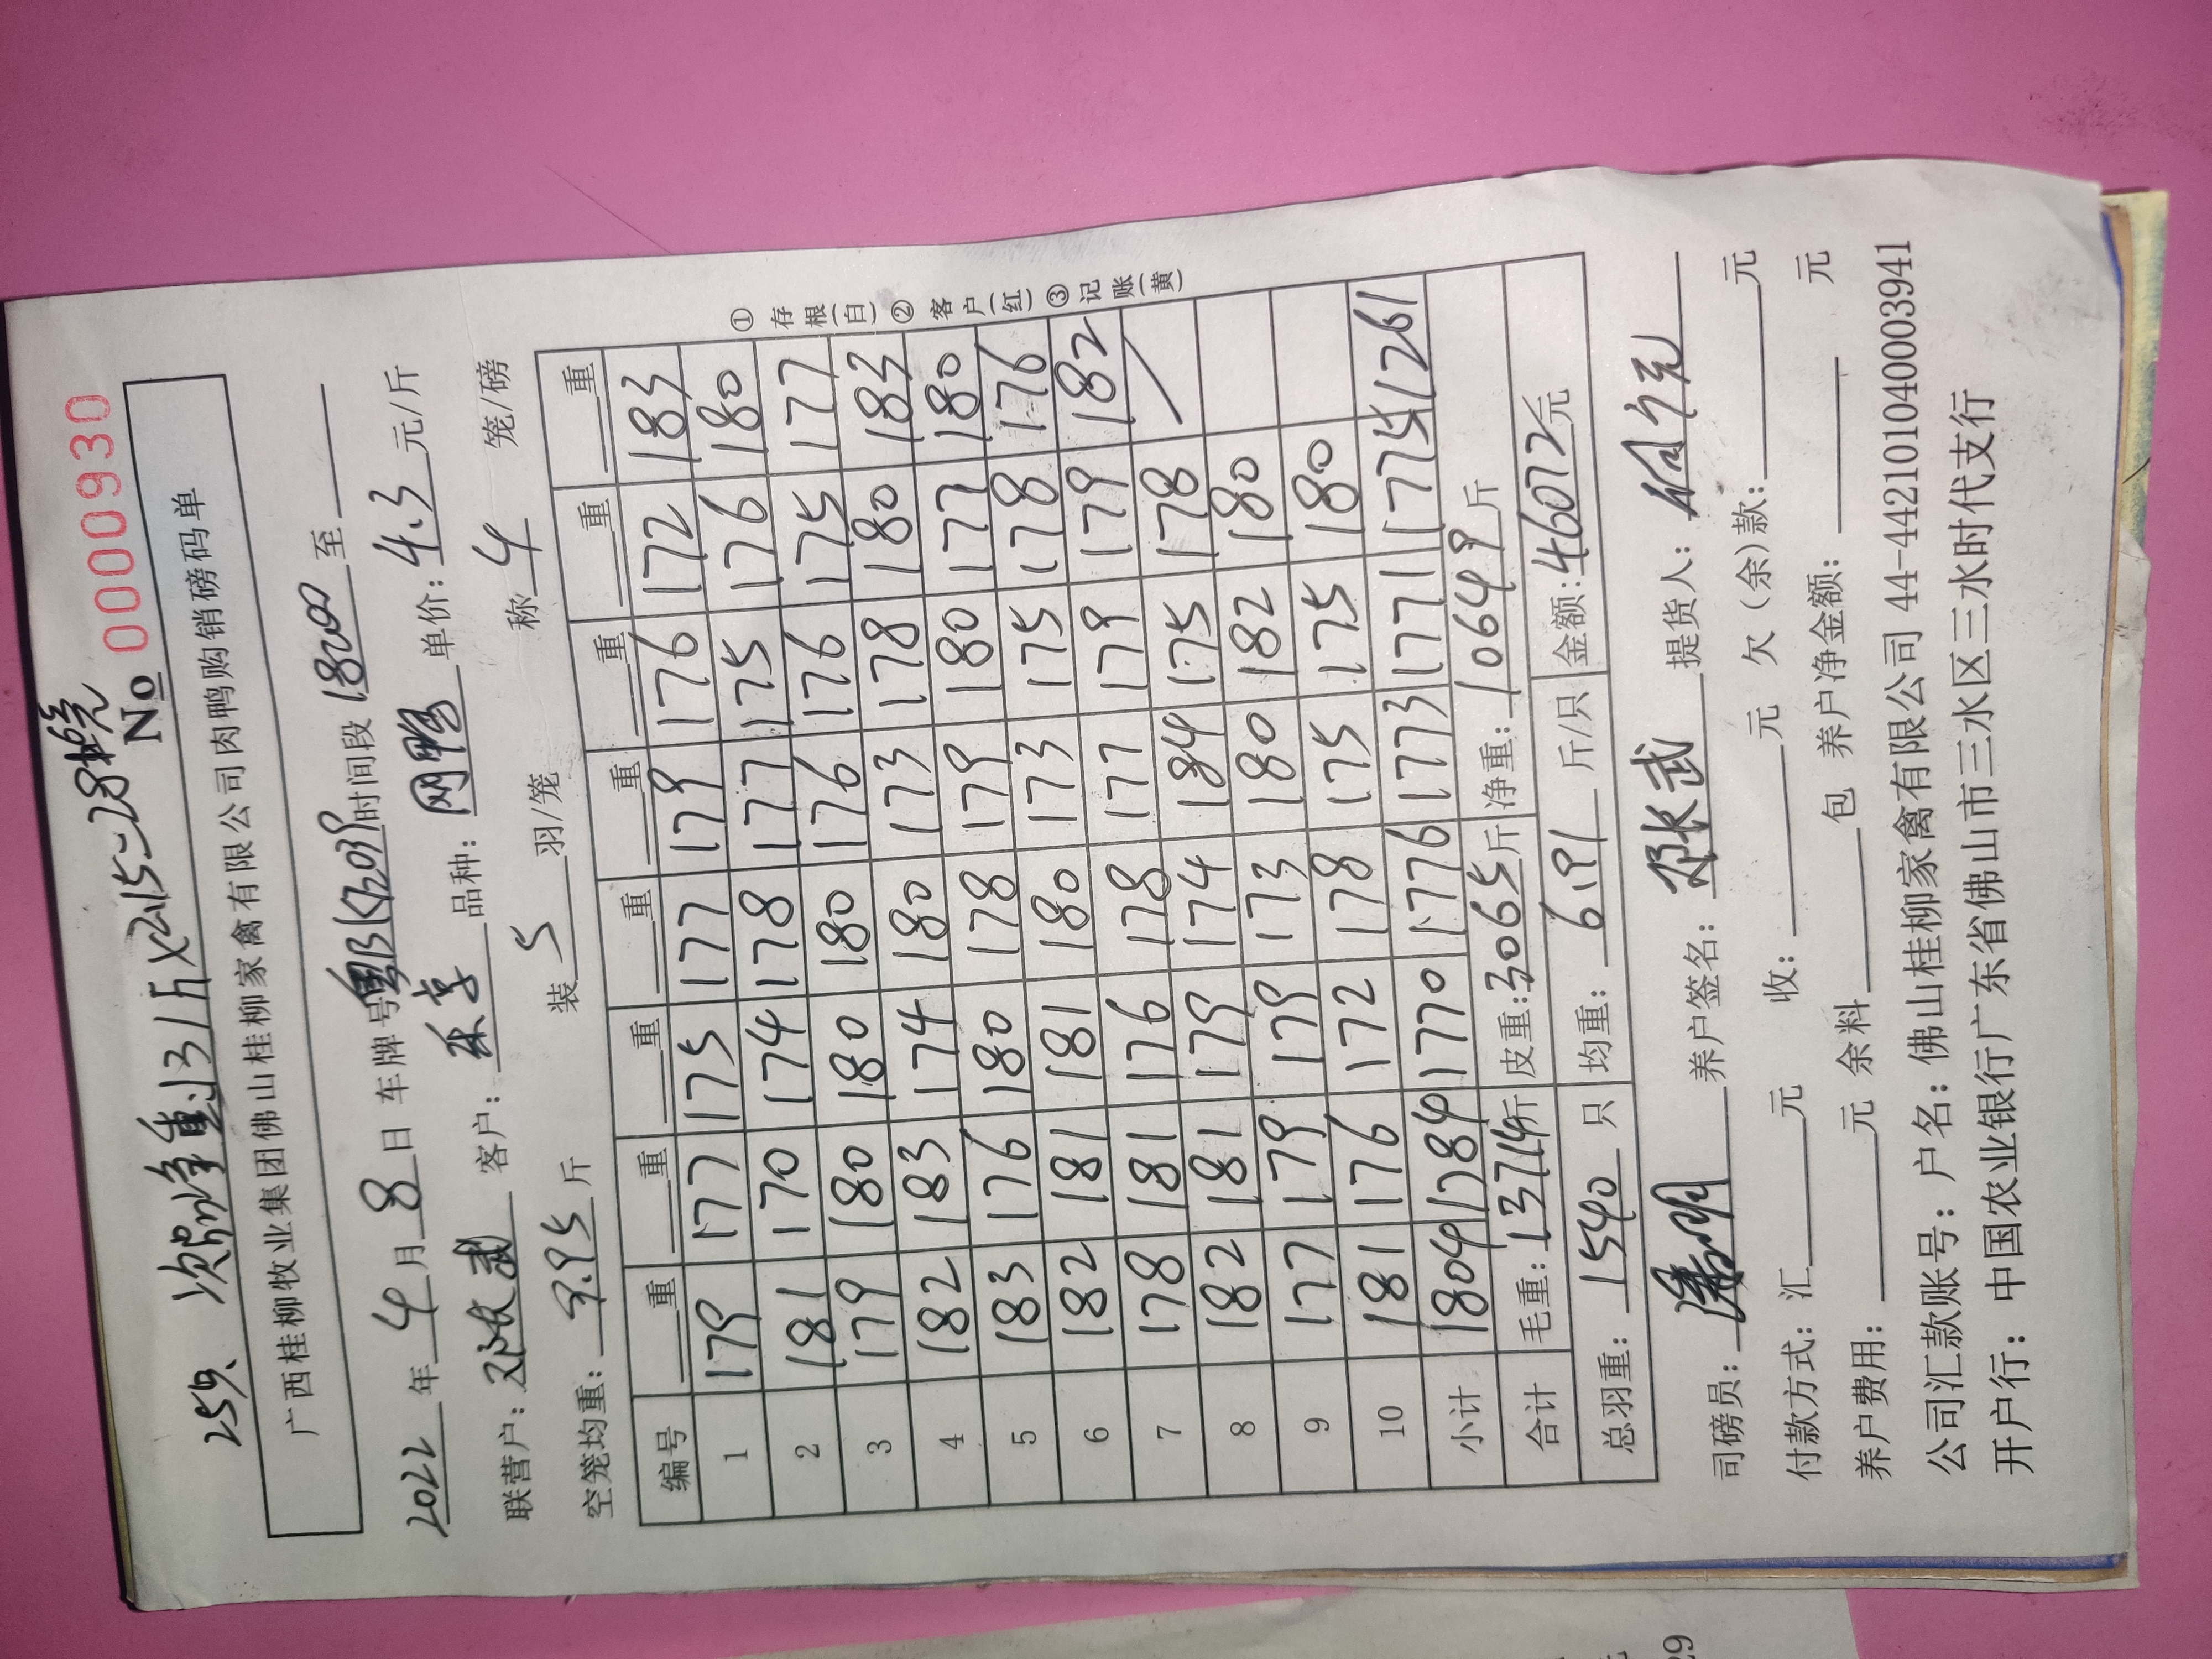 No 0000930
广西桂柳牧业集团佛山桂柳家禽有限公司肉鸭购销磅码单
2022年4月8日 车牌号 时间段 至
联营户: 客户: 品种: 单价:4.3元/斤
空笼均重: 斤 装5羽/笼 称4笼/磅
编号 重 重 重 重 重 重 重 重
1 179 177 175 177 179 176 172 183
2 181 170 174 178 177 175 176 180
3 179 180 180 180 176 176 175 177
4 182 183 174 180 173 178 180 183
5 183 176 180 178 179 180 177 180
6 182 181 181 180 173 175 178 176
7 178 181 176 178 177 179 179 182
8 182 181 179 174 184 175 178
9 177 179 179 173 180 182 180
10 181 176 172 178 175 175 180
小计 1804 1784 1770 1776 1773 1771 1775 1261
合计 毛重:13714斤 皮重:3065斤 净重:10649斤
总羽重:1540只 均重:6.91斤/只 金额:46072元
①存根(白)②客户(红)③记账(黄)
司磅员: 养户签名: 提货人:
付款方式:汇 元 收: 元 欠(余)款: 元
养户费用: 元 余料 包 养户净金额: 元
公司汇款账号:户名:佛山桂柳家禽有限公司 44-442101040003941
开户行:中国农业银行广东省佛山市三水区三水时代支行
29